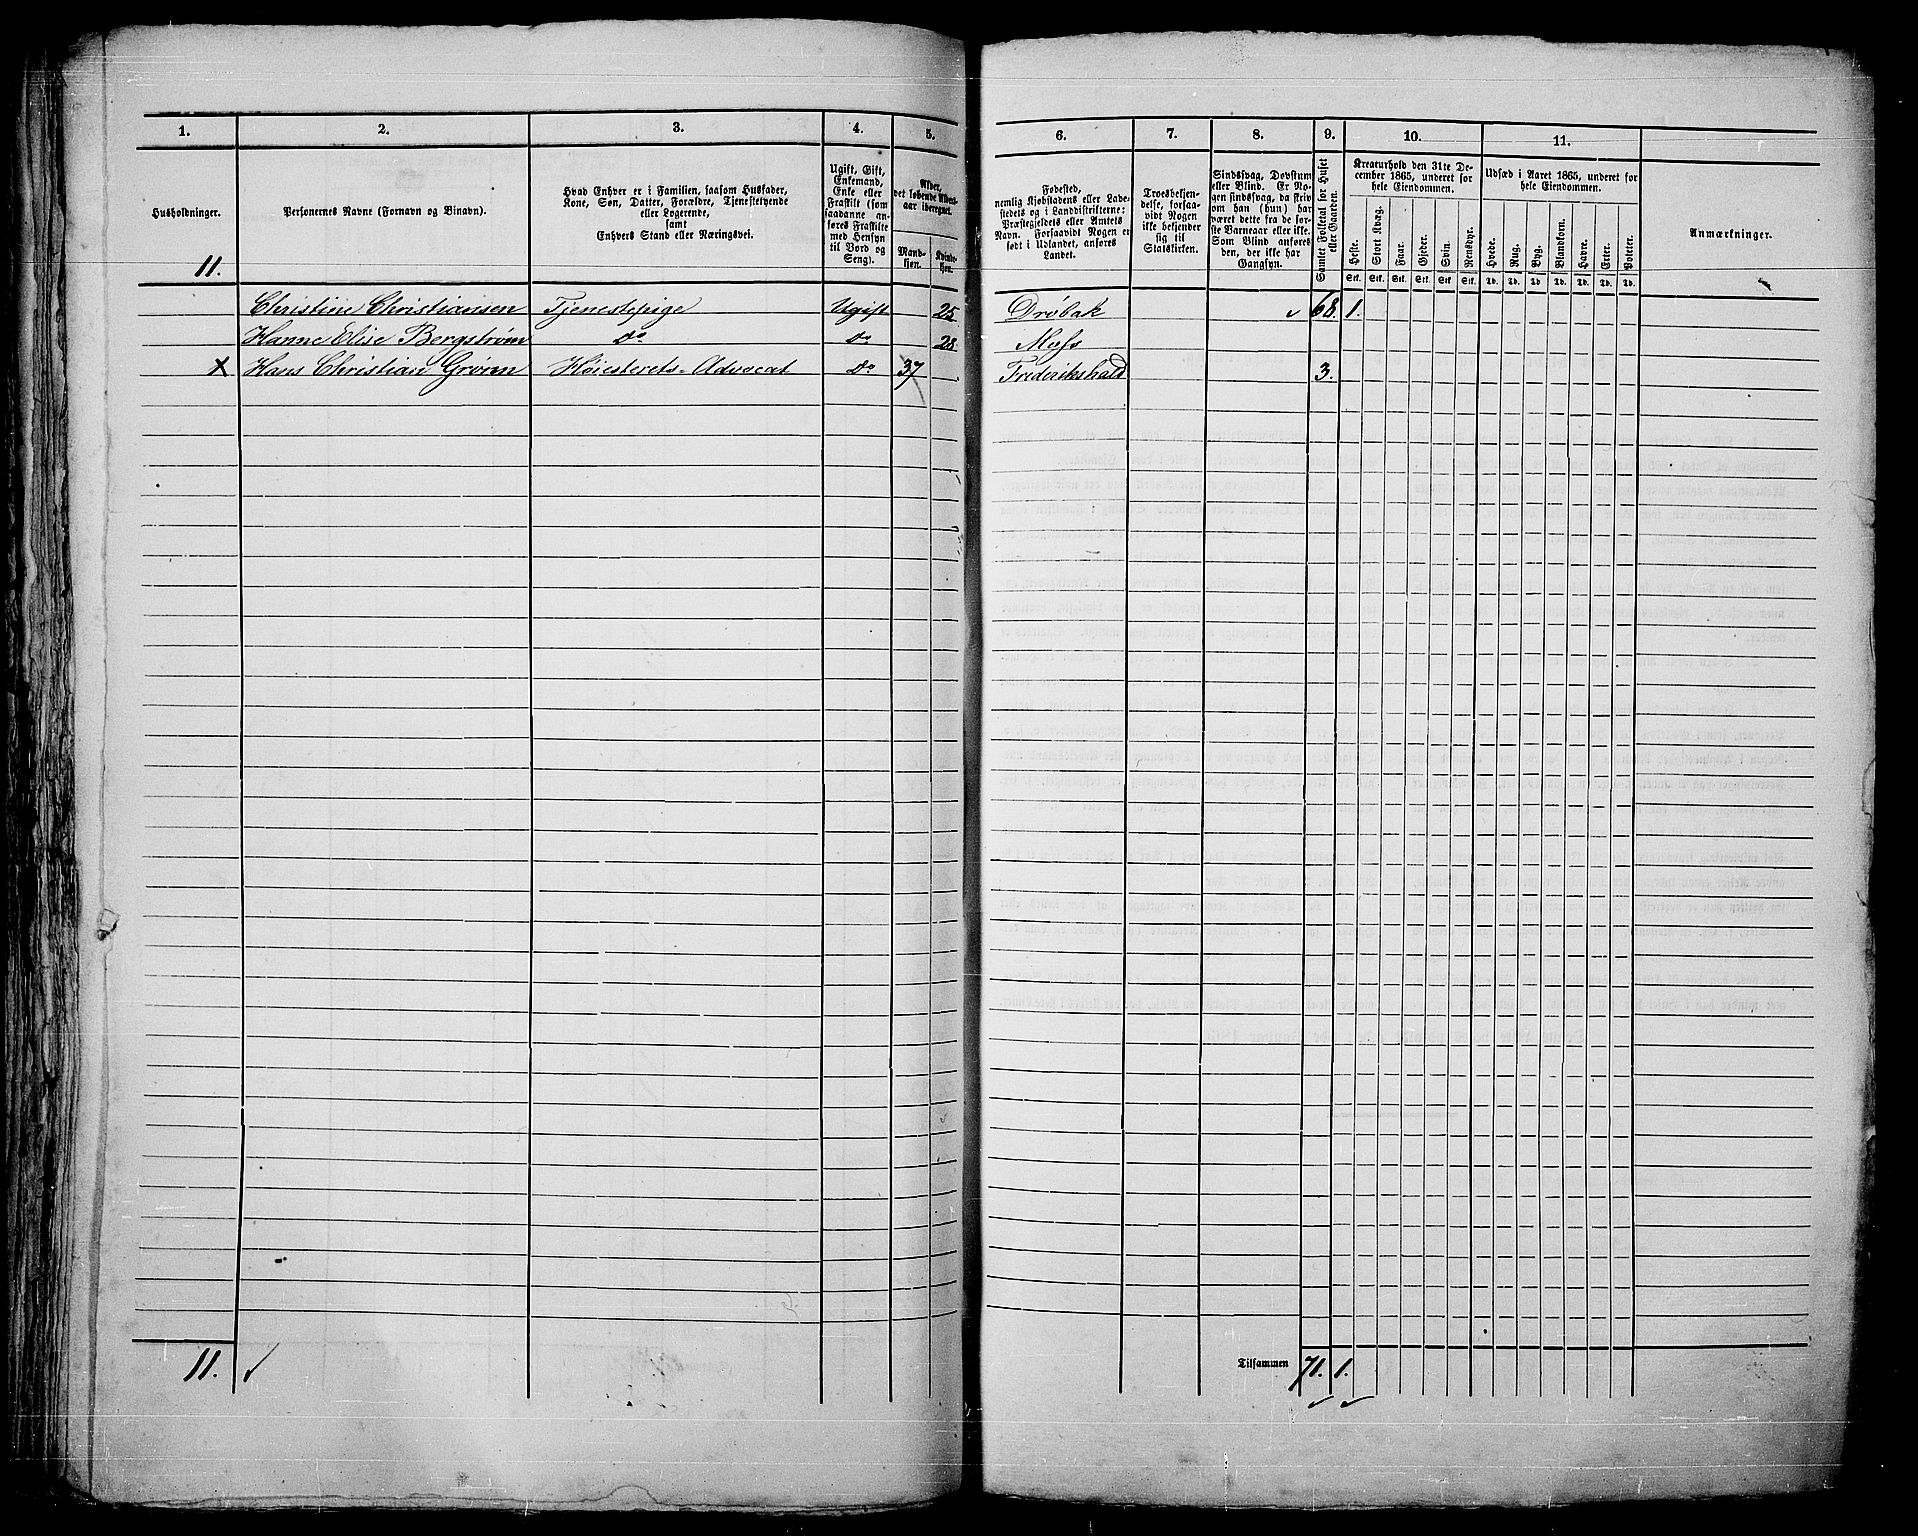 1. 2. 3. 4. 5. 6. 7. 8. 9. 10. 11.
Husholdninger.
Personernes Navne (Fornavn og Binavn).
Hvad Enhver er i Familien, saasom Husfader,
Kone, Søn, Datter, Forældre, Tjenestetyende
eller Logerende,
samt
Enhvers Stand eller Næringsvei.
Ugift, Gift,
Enkemand,
Enke eller
Fraskilt (som
saadanne an-
føres Fraskilte
med Hensyn
til Bord og
Seng).
Alder,
det løbende Alders-
aar iberegnet.
Mand-
kjøn.
Kvinde-
kjøn.
Fødested,
nemlig Kjøbstadens eller Lade-
stedets og i Landdistrikterne:
Præstegjeldets eller Amtets
Navn. Forsaavidt Nogen er
født i Udlandet, anføres
Landet.
Troesbekjen-
delse, forsaa-
vidt Nogen
ikke bekjender
sig til
Statskirken.
Sindssvag, Døvstum
eller Blind. Er No-
gen sindssvag, da skriv
om han (hun) har
været dette fra de før-
ste Barneaar eller ikke.
Som Blind anføres
den, der ikke har
Gangsyn.
Samlet Folketal for Huset
eller Gaarden.
Kreaturhold den 31te De-
cember 1865, underet for
hele Eiendommen.
Heste. Stort Kvæg. Faar. Gjeder. Svin. Rensdyr.
Stk. Stk. Stk. Stk. Stk. Stk.
Udsæd i Aaret 1865, underet for
hele Eiendommen.
Hvede. Rug. Byg. Blandkorn. Havre. Erter. Poteter.
Td. Td. Td. Td. Td. Td. Td.
Anmærkninger.
11.
Christine Christiansen Tjenestepige Ugift 25 Drøbak ✓ 68. 1.
Hanne Elise Bergstrøm do do 28 Moss
x Hans Christian Grønn Høiesterets-Advocat do 37 Frederikshald 3.
11. ✓ Tilsammen 71. 1.
✓ ✓